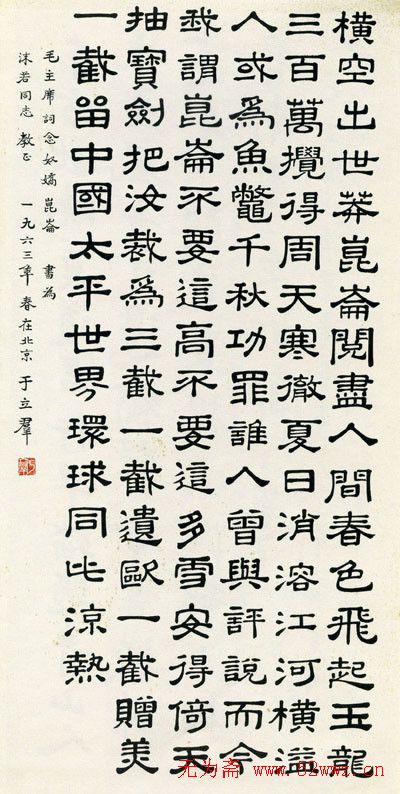 橫空出世莽崑崙閱盡人間春色飛起玉龍
三百萬攪得周天寒徹夏日消溶江河橫溢
人或爲魚鼈千秋功罪誰人曾與評說而今
我謂崑崙不要這高不要這多雪安得倚天
抽寶劍把汝裁爲三截一截遺歐一截贈美
一截留中國太平世界環球同此涼熱
毛主席詞念奴嬌崑崙 書為
沫若同志教正 一九六三年春在北京 于立羣
无为斋